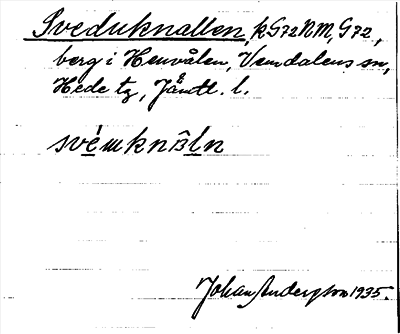 Sveduknallen, k G72 NM, G72,
berg i Henvålen, Vemdalens sn,
Hede tg, Jämtl. l.
svémknßln
Johan Anderson 1935.